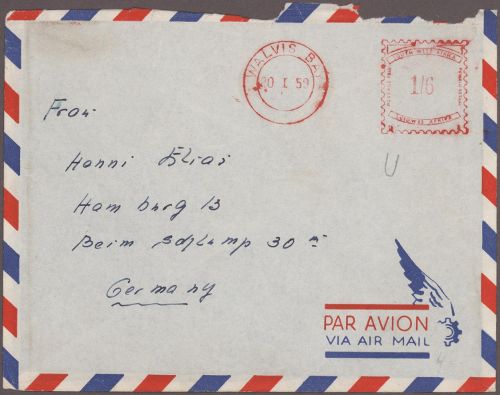 WALVIS BAY
20 I 59
SOUTH WEST AFRICA
1/6
SUIDWES-AFRIKA
Frau
Hanni Elias
Hamburg 13
Beim Schlump 30
Germany
U
PAR AVION
VIA AIR MAIL